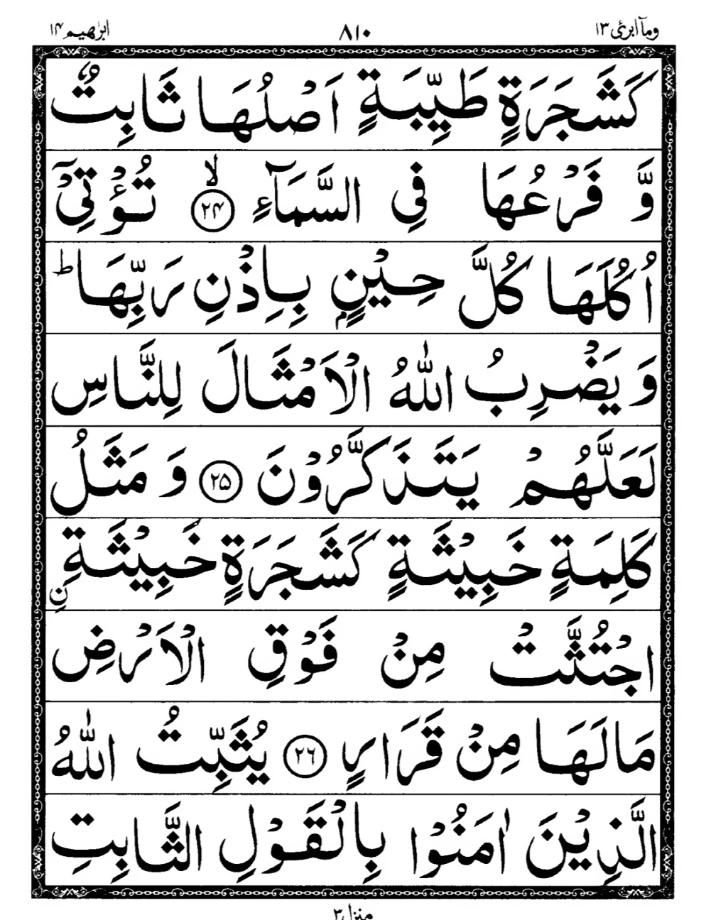 وماۤ ابرئ ١٣ ٨١٠ ابرٰهيم ١٤
كَشَجَرَةٍ طَيِّبَةٍ اَصْلُهَا ثَابِتٌ
وَّ فَرْعُهَا فِي السَّمَآءِ ۙ﴿۲۴﴾ تُؤْتِيْۤ
اُكُلَهَا كُلَّ حِيْنٍۭ بِاِذْنِ رَبِّهَا ؕ
وَ يَضْرِبُ اللّٰهُ الْاَمْثَالَ لِلنَّاسِ
لَعَلَّهُمْ يَتَذَكَّرُوْنَ ﴿۲۵﴾ وَ مَثَلُ
كَلِمَةٍ خَبِيْثَةٍ كَشَجَرَةٍ خَبِيْثَةِ ۣن
اجْتُثَّتْ مِنْ فَوْقِ الْاَرْضِ
مَا لَهَا مِنْ قَرَارٍ ﴿۲۶﴾ يُثَبِّتُ اللّٰهُ
الَّذِيْنَ اٰمَنُوْا بِالْقَوْلِ الثَّابِتِ
منزل ٣